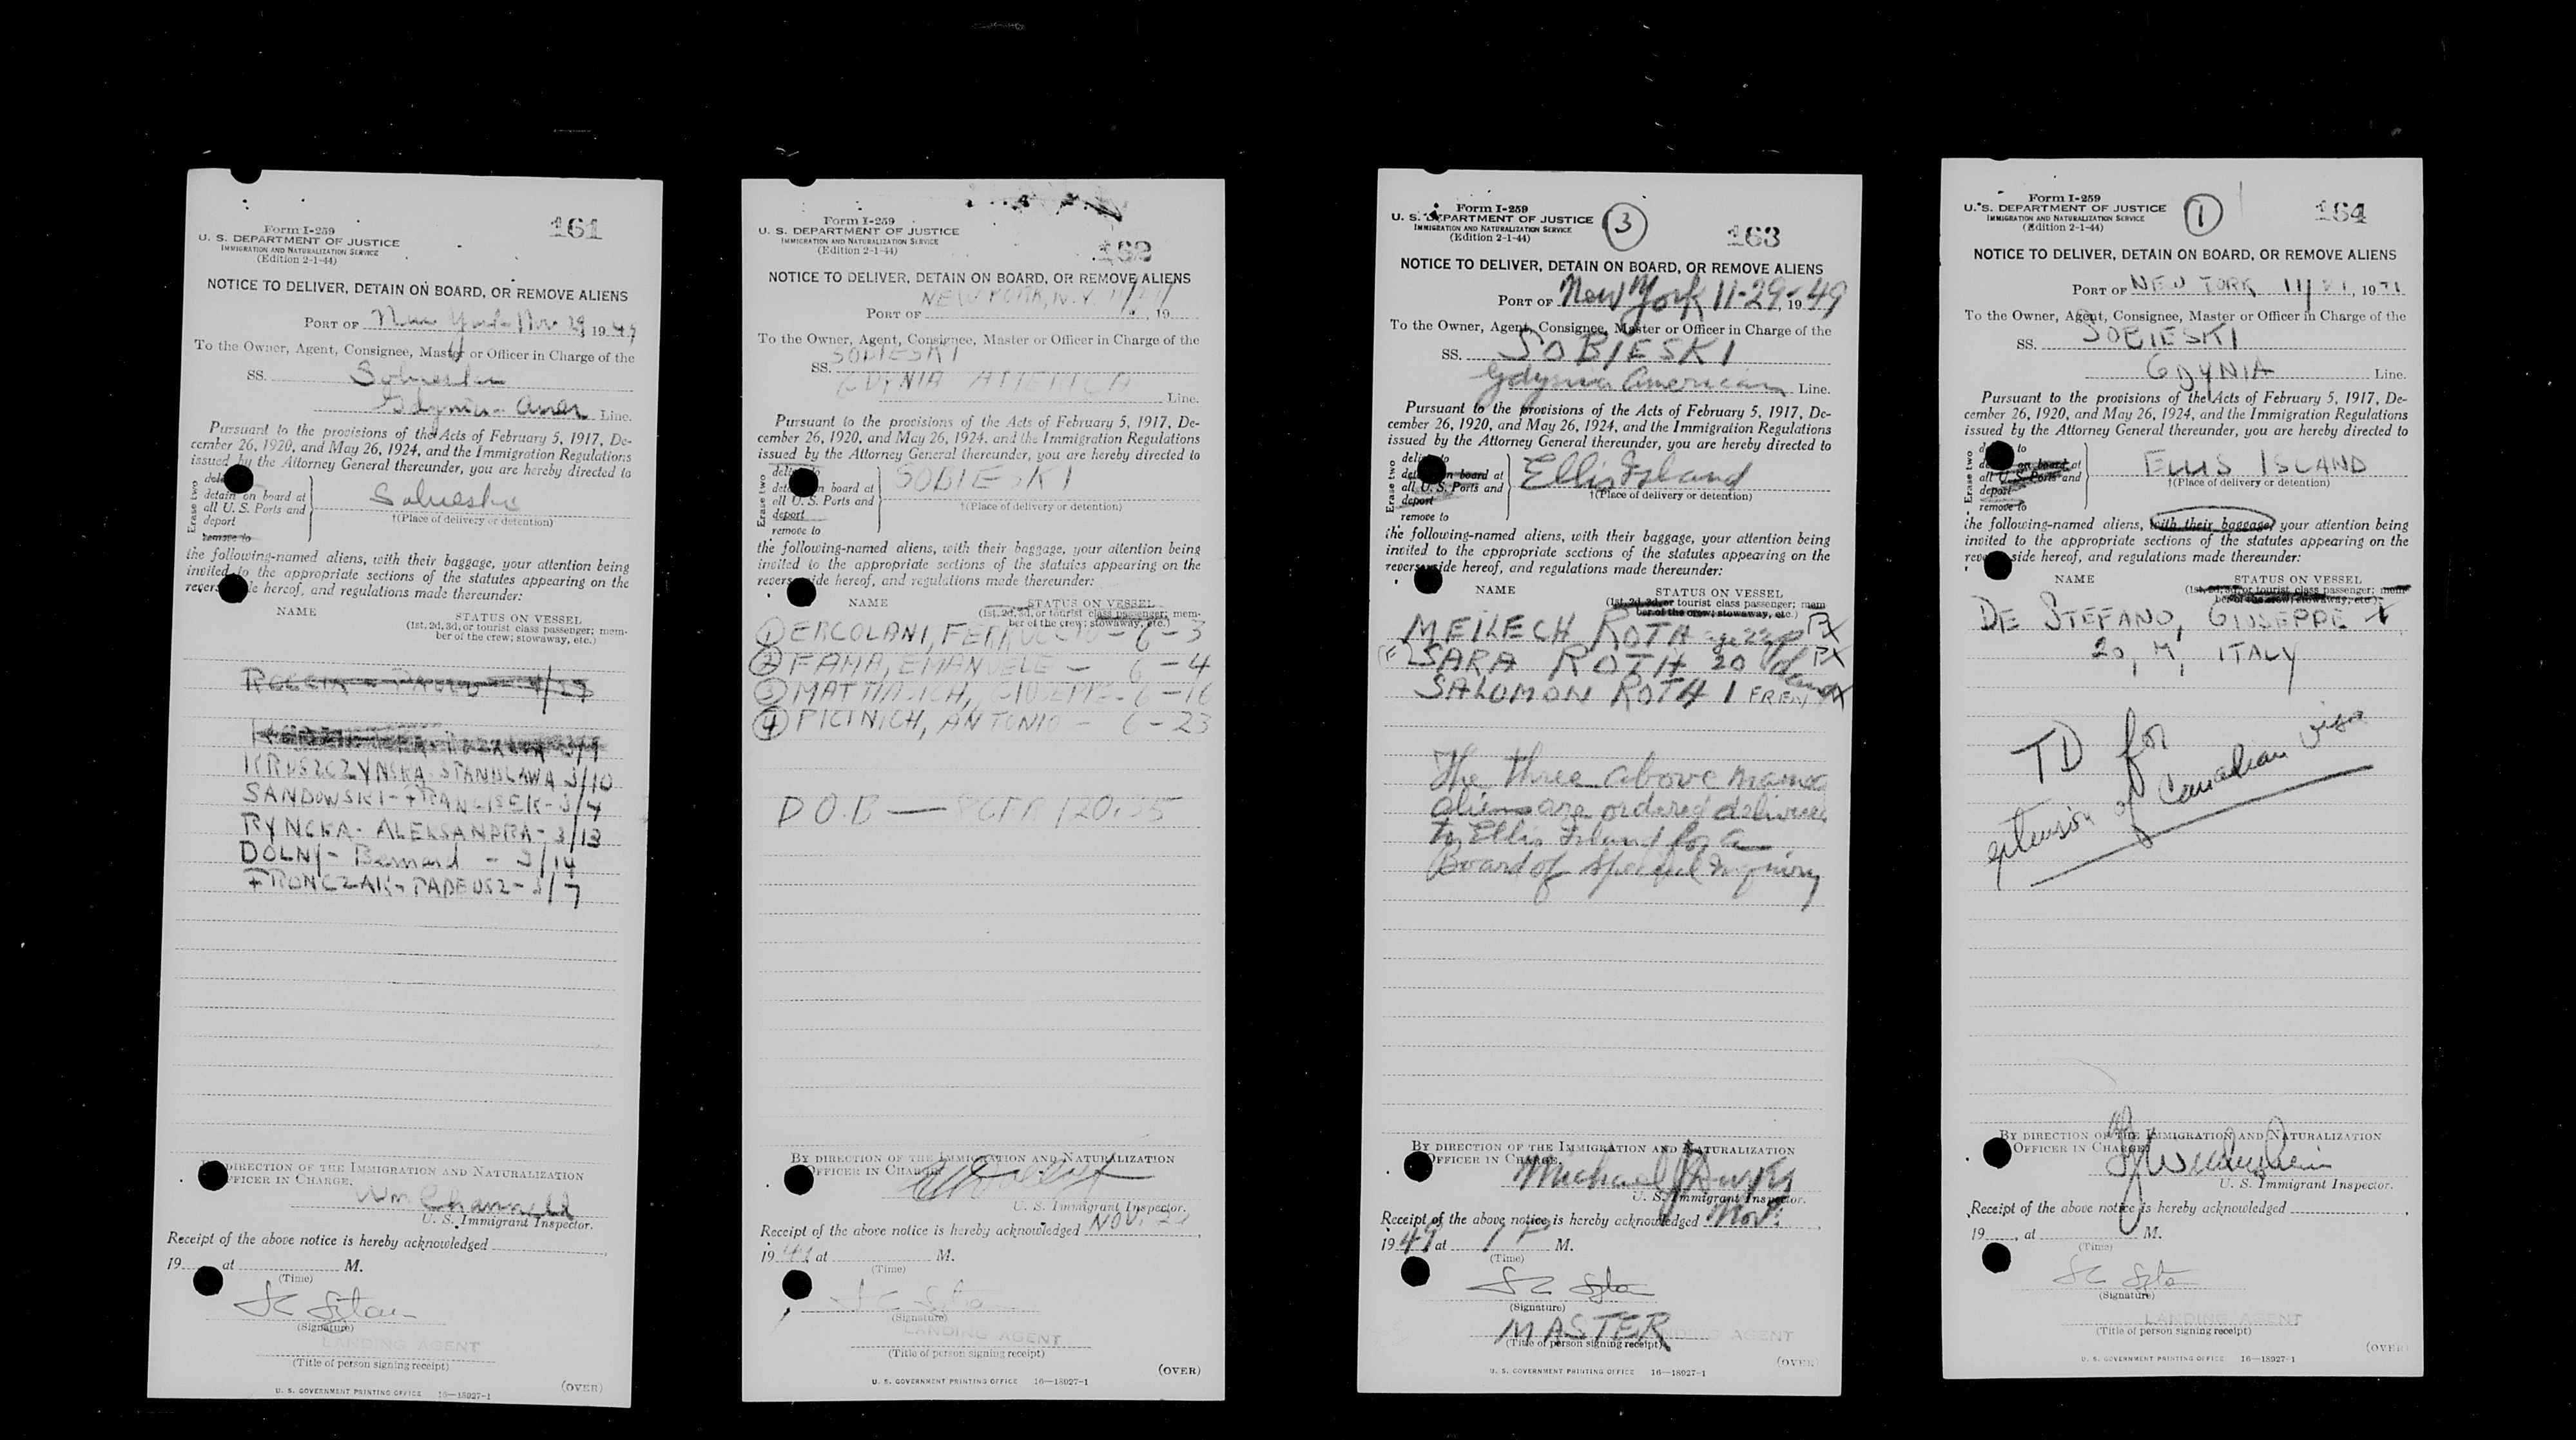 161
Form I-259
U. S. DEPARTMENT OF JUSTICE
IMMIGRATION AND NATURALIZATION SERVICE
(Edition 2-1-44)
NOTICE TO DELIVER, DETAIN ON BOARD, OR REMOVE ALIENS
PORT OF New York Nov 29 1949
To the Owner, Agent, Consignee, Master or Officer in Charge of the
SS. Sobieski
Gdynia-Amer Line.
Pursuant to the provisions of the Acts of February 5, 1917, De-
cember 26, 1920, and May 26, 1924, and the Immigration Regulations
issued by the Attorney General thereunder, you are hereby directed to
Erase two
detain on board at
all U. S. Ports and
deport
remove to
Sobieski
†(Place of delivery or detention)
the following-named aliens, with their baggage, your attention being
invited to the appropriate sections of the statutes appearing on the
reverse side hereof, and regulations made thereunder:
NAME
STATUS ON VESSEL
(1st, 2d, 3d, or tourist class passenger; mem-
ber of the crew; stowaway, etc.)
KRUSZCZYNSKA-STANISLAWA 3/10
SANDOWSKI-FRANCISEK-3/4
RYNCKA-ALEKSANDRA-3/13
DOLNY-Bernard - 3/14
FRONCZAK-TADEUSZ-3/7
BY DIRECTION OF THE IMMIGRATION AND NATURALIZATION
OFFICER IN CHARGE.
Wm Channell
U. S. Immigrant Inspector.
Receipt of the above notice is hereby acknowledged
19 at M.
(Time)
(Signature)
LANDING AGENT
(Title of person signing receipt)
U. S. GOVERNMENT PRINTING OFFICE 16—18027-1
(OVER)
Form I-259
U. S. DEPARTMENT OF JUSTICE
IMMIGRATION AND NATURALIZATION SERVICE
(Edition 2-1-44)
162
NOTICE TO DELIVER, DETAIN ON BOARD, OR REMOVE ALIENS
NEW YORK, N.Y. 11/29/
PORT OF , 19
To the Owner, Agent, Consignee, Master or Officer in Charge of the
SS. SOBIESKI
GDYNIA AMERICA
Line.
Pursuant to the provisions of the Acts of February 5, 1917, De-
cember 26, 1920, and May 26, 1924, and the Immigration Regulations
issued by the Attorney General thereunder, you are hereby directed to
Erase two
deliver to
detain on board at
all U. S. Ports and
deport
remove to
SOBIESKI
†(Place of delivery or detention)
the following-named aliens, with their baggage, your attention being
invited to the appropriate sections of the statutes appearing on the
reverse side hereof, and regulations made thereunder:
NAME
STATUS ON VESSEL
(1st, 2d, 3d, or tourist class passenger; mem-
ber of the crew; stowaway, etc.)
① ERCOLANI, FERRUCCIO - 6-3
② FAMA, EMANUELE - 6-4
③ GIUSEPPE-6-16
④ PICINICH, ANTONIO - 6-23
D.O.B —
BY DIRECTION OF THE IMMIGRATION AND NATURALIZATION
OFFICER IN CHARGE
U. S. Immigrant Inspector.
Receipt of the above notice is hereby acknowledged NOV. 29
1949 at M.
(Time)
(Signature)
LANDING AGENT
(Title of person signing receipt)
(OVER)
U. S. GOVERNMENT PRINTING OFFICE 16—18027-1
Form I-259
U. S. DEPARTMENT OF JUSTICE
IMMIGRATION AND NATURALIZATION SERVICE
(Edition 2-1-44)
3
163
NOTICE TO DELIVER, DETAIN ON BOARD, OR REMOVE ALIENS
PORT OF New York 11-29-, 1949
To the Owner, Agent, Consignee, Master or Officer in Charge of the
SS. SOBIESKI
Gdynia American Line.
Pursuant to the provisions of the Acts of February 5, 1917, De-
cember 26, 1920, and May 26, 1924, and the Immigration Regulations
issued by the Attorney General thereunder, you are hereby directed to
Erase two
deliver to
detain on board at
all U. S. Ports and
deport
remove to
Ellis Island
†(Place of delivery or detention)
the following-named aliens, with their baggage, your attention being
invited to the appropriate sections of the statutes appearing on the
reverse side hereof, and regulations made thereunder:
NAME
STATUS ON VESSEL
(1st, 2d, 3d, or tourist class passenger; mem
ber of the crew; stowaway, etc.)
MEILECH ROTH age 22
(F) SARA ROTH 20
SALOMON ROTH 1
The three above named
aliens are ordered delivered
to Ellis Island for a
Board of Special Inquiry
BY DIRECTION OF THE IMMIGRATION AND NATURALIZATION
OFFICER IN CHARGE.
Michael
U. S. Immigrant Inspector.
Receipt of the above notice is hereby acknowledged Nov.
1949 at 1 P M.
(Time)
(Signature)
MASTER
LANDING AGENT
(Title of person signing receipt)
(OVER)
U. S. GOVERNMENT PRINTING OFFICE 16—18027-1
Form I-259
U. S. DEPARTMENT OF JUSTICE
IMMIGRATION AND NATURALIZATION SERVICE
(Edition 2-1-44)
1
164
NOTICE TO DELIVER, DETAIN ON BOARD, OR REMOVE ALIENS
PORT OF NEW YORK
To the Owner, Agent, Consignee, Master or Officer in Charge of the
SS. SOBIESKI
GDYNIA Line.
Pursuant to the provisions of the Acts of February 5, 1917, De-
cember 26, 1920, and May 26, 1924, and the Immigration Regulations
issued by the Attorney General thereunder, you are hereby directed to
Erase two
on board at
all U. S. Ports and
deport
remove to
ELLIS ISLAND
†(Place of delivery or detention)
the following-named aliens, with their baggage, your attention being
invited to the appropriate sections of the statutes appearing on the
reverse side hereof, and regulations made thereunder:
NAME
STATUS ON VESSEL
(1st, 2d, 3d, or tourist class passenger; mem-
ber of the crew; stowaway, etc.)
DE STEFANO, GIUSEPPE
20, M, ITALY
TD for
extension of Canadian visa
BY DIRECTION OF THE IMMIGRATION AND NATURALIZATION
OFFICER IN CHARGE.
U. S. Immigrant Inspector.
Receipt of the above notice is hereby acknowledged
19 , at M.
(Time)
(Signature)
LANDING AGENT
(Title of person signing receipt)
(OVER)
U. S. GOVERNMENT PRINTING OFFICE 16—18027-1